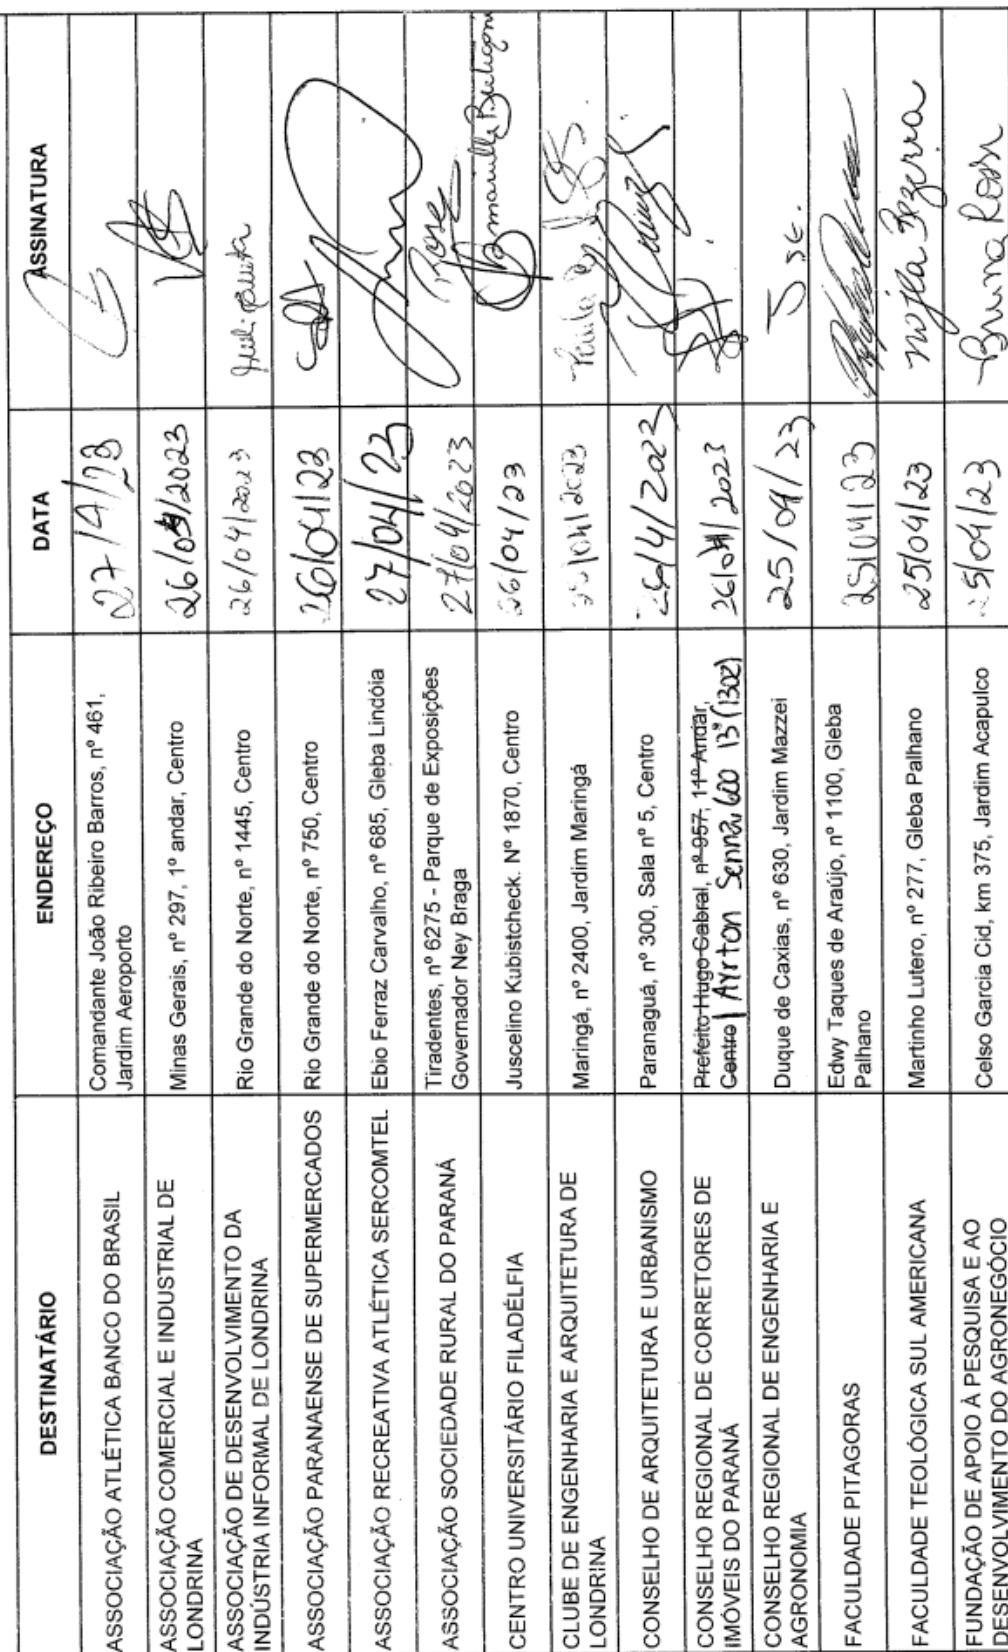 DESTINATÁRIO ENDEREÇO DATA ASSINATURA
ASSOCIAÇÃO ATLÉTICA BANCO DO BRASIL
Comandante João Ribeiro Barros, nº 461,
Jardim Aeroporto
27/4/23
ASSOCIAÇÃO COMERCIAL E INDUSTRIAL DE
LONDRINA
Minas Gerais, nº 297, 1º andar, Centro
26/04/2023
ASSOCIAÇÃO DE DESENVOLVIMENTO DA
INDÚSTRIA INFORMAL DE LONDRINA
Rio Grande do Norte, nº 1445, Centro
26/04/2023
ASSOCIAÇÃO PARANAENSE DE SUPERMERCADOS
Rio Grande do Norte, nº 750, Centro
26/04/23
ASSOCIAÇÃO RECREATIVA ATLÉTICA SERCOMTEL
Ebio Ferraz Carvalho, nº 685, Gleba Lindóia
27/04/23
ASSOCIAÇÃO SOCIEDADE RURAL DO PARANÁ
Tiradentes, nº 6275 - Parque de Exposições
Governador Ney Braga
27/04/2023
Rose
CENTRO UNIVERSITÁRIO FILADÉLFIA
Juscelino Kubistcheck. Nº 1870, Centro
26/04/23
CLUBE DE ENGENHARIA E ARQUITETURA DE
LONDRINA
Maringá, nº 2400, Jardim Maringá
Paula
CONSELHO DE ARQUITETURA E URBANISMO
Paranaguá, nº 300, Sala nº 5, Centro
26/4/2023
CONSELHO REGIONAL DE CORRETORES DE
IMÓVEIS DO PARANÁ
Prefeito Hugo Cabral, nº 957, 11º Andar,
Centro | Ayrton Senna, 600 13º (1302)
26/04/2023
CONSELHO REGIONAL DE ENGENHARIA E
AGRONOMIA
Duque de Caxias, nº 630, Jardim Mazzei
25/04/23
José.
FACULDADE PITAGORAS
Edwy Taques de Araújo, nº 1100, Gleba
Palhano
25/04/23
FACULDADE TEOLÓGICA SUL AMERICANA
Martinho Lutero, nº 277, Gleba Palhano
25/04/23
Bezerra
FUNDAÇÃO DE APOIO À PESQUISA E AO
DESENVOLVIMENTO DO AGRONEGÓCIO
Celso Garcia Cid, km 375, Jardim Acapulco
25/04/23
Bruna Rossi